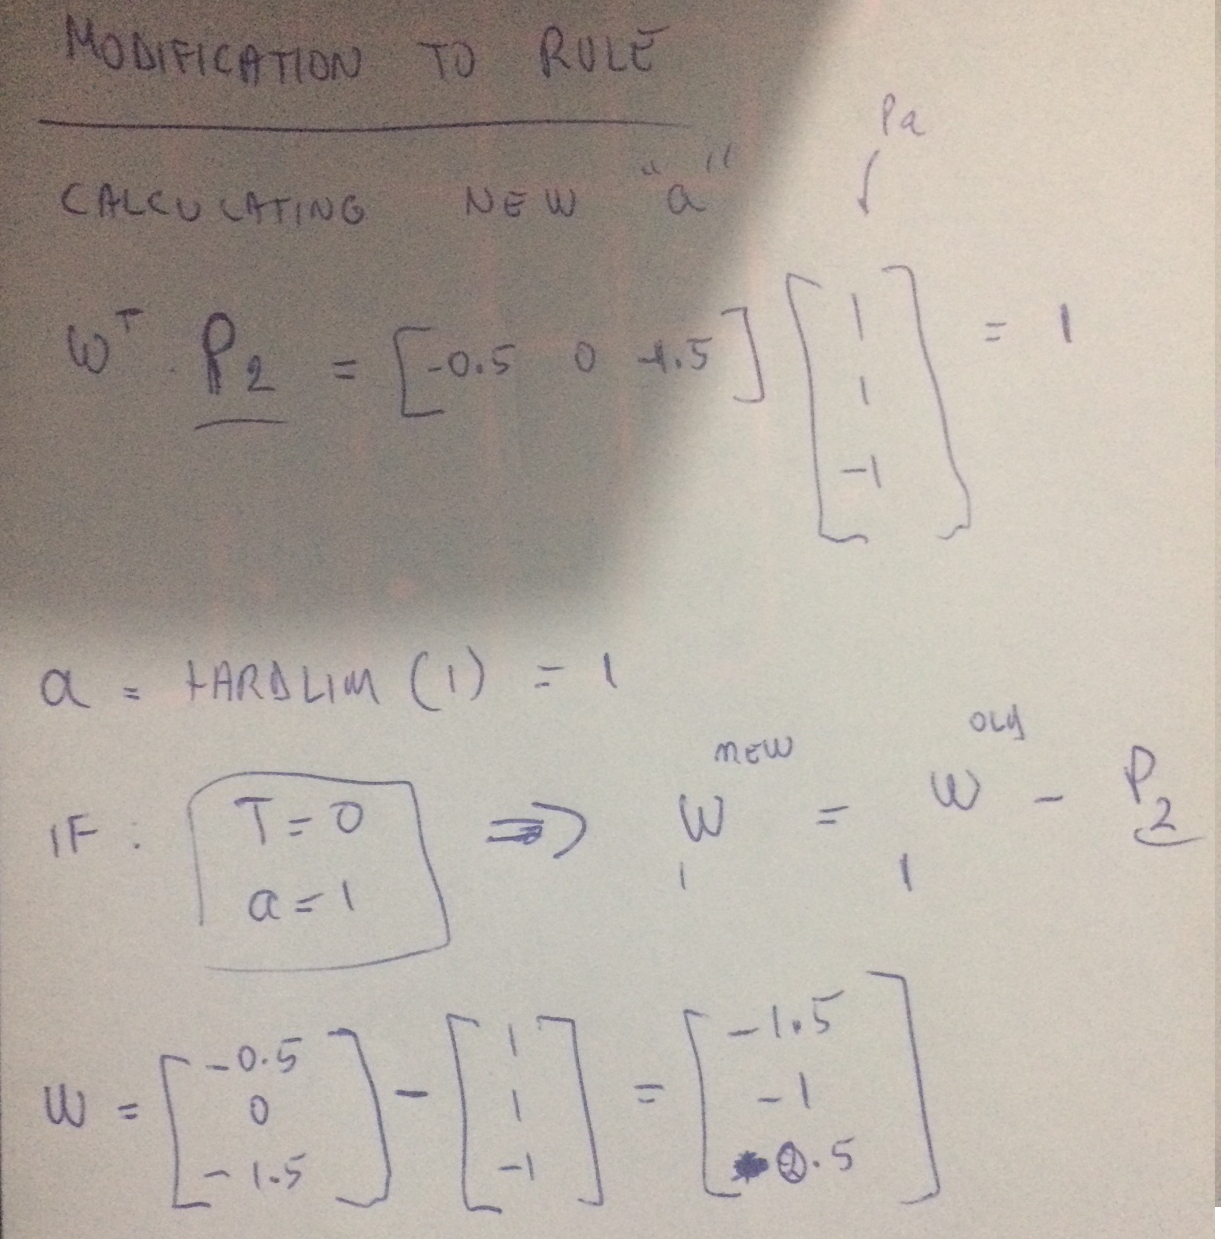 MODIFICATION TO RULE
CALCULATING NEW "a"
Pa
W^T . P2 = [-0.5 0 -1.5] [1 1 -1] = 1
a = HARDLIM (1) = 1
IF : T=0 a=1 => 1W^new = 1W^old - P2
W = [-0.5 0 -1.5] - [1 1 -1] = [-1.5 -1 .5]